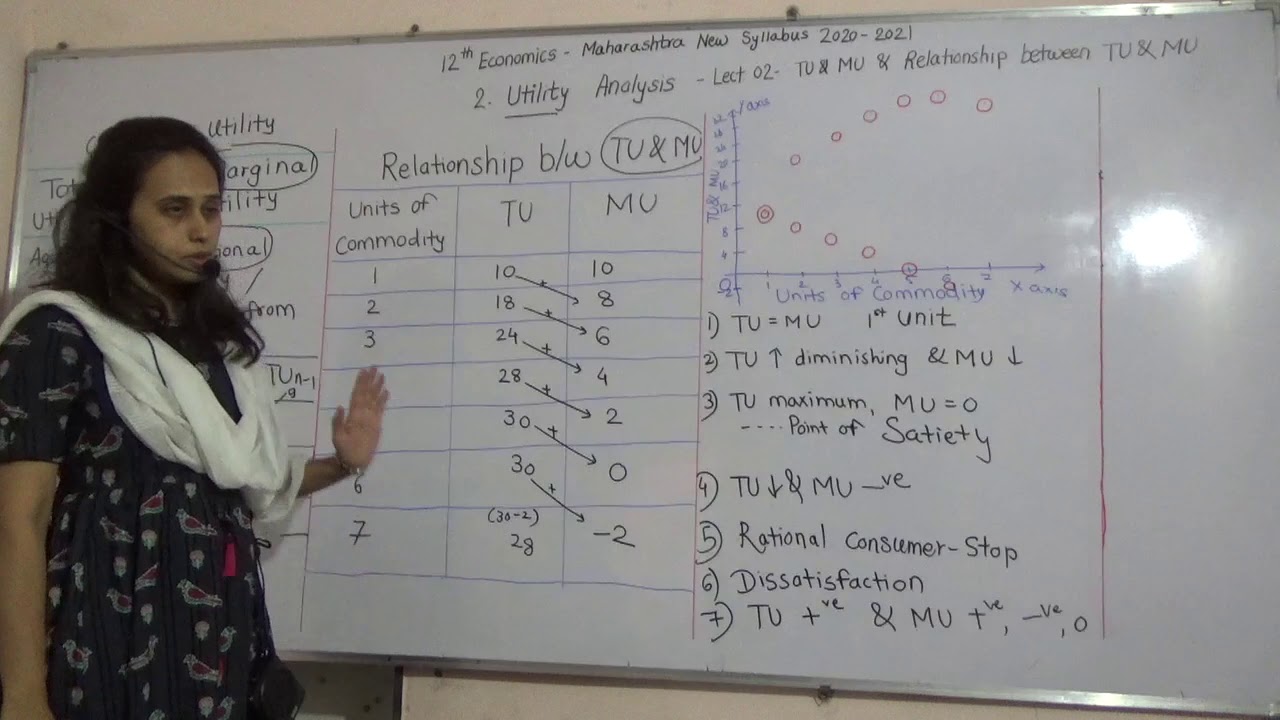 12th Economics - Maharashtra New Syllabus 2020-2021
2. Utility Analysis - Lect 02- TU & MU & Relationship between TU & MU
utility
arginal
tility
onal
from
TUn-1
Relationship b/w TU & MU
Units of Commodity TU MU
1 10 10
2 18 8
3 24 6
28 4
30 2
6 30 0
7 (30-2) 28 -2
Y axis
TU & MU
12
8
4
1 2 3 4 5 6 7
Units of Commodity X axis
1) TU = MU 1st unit
2) TU ↑ diminishing & MU ↓
3) TU maximum, MU = 0
---- Point of Satiety
4) TU ↓ & MU -ve
5) Rational Consumer-Stop
6) Dissatisfaction
7) TU +ve & MU +ve, -ve, 0